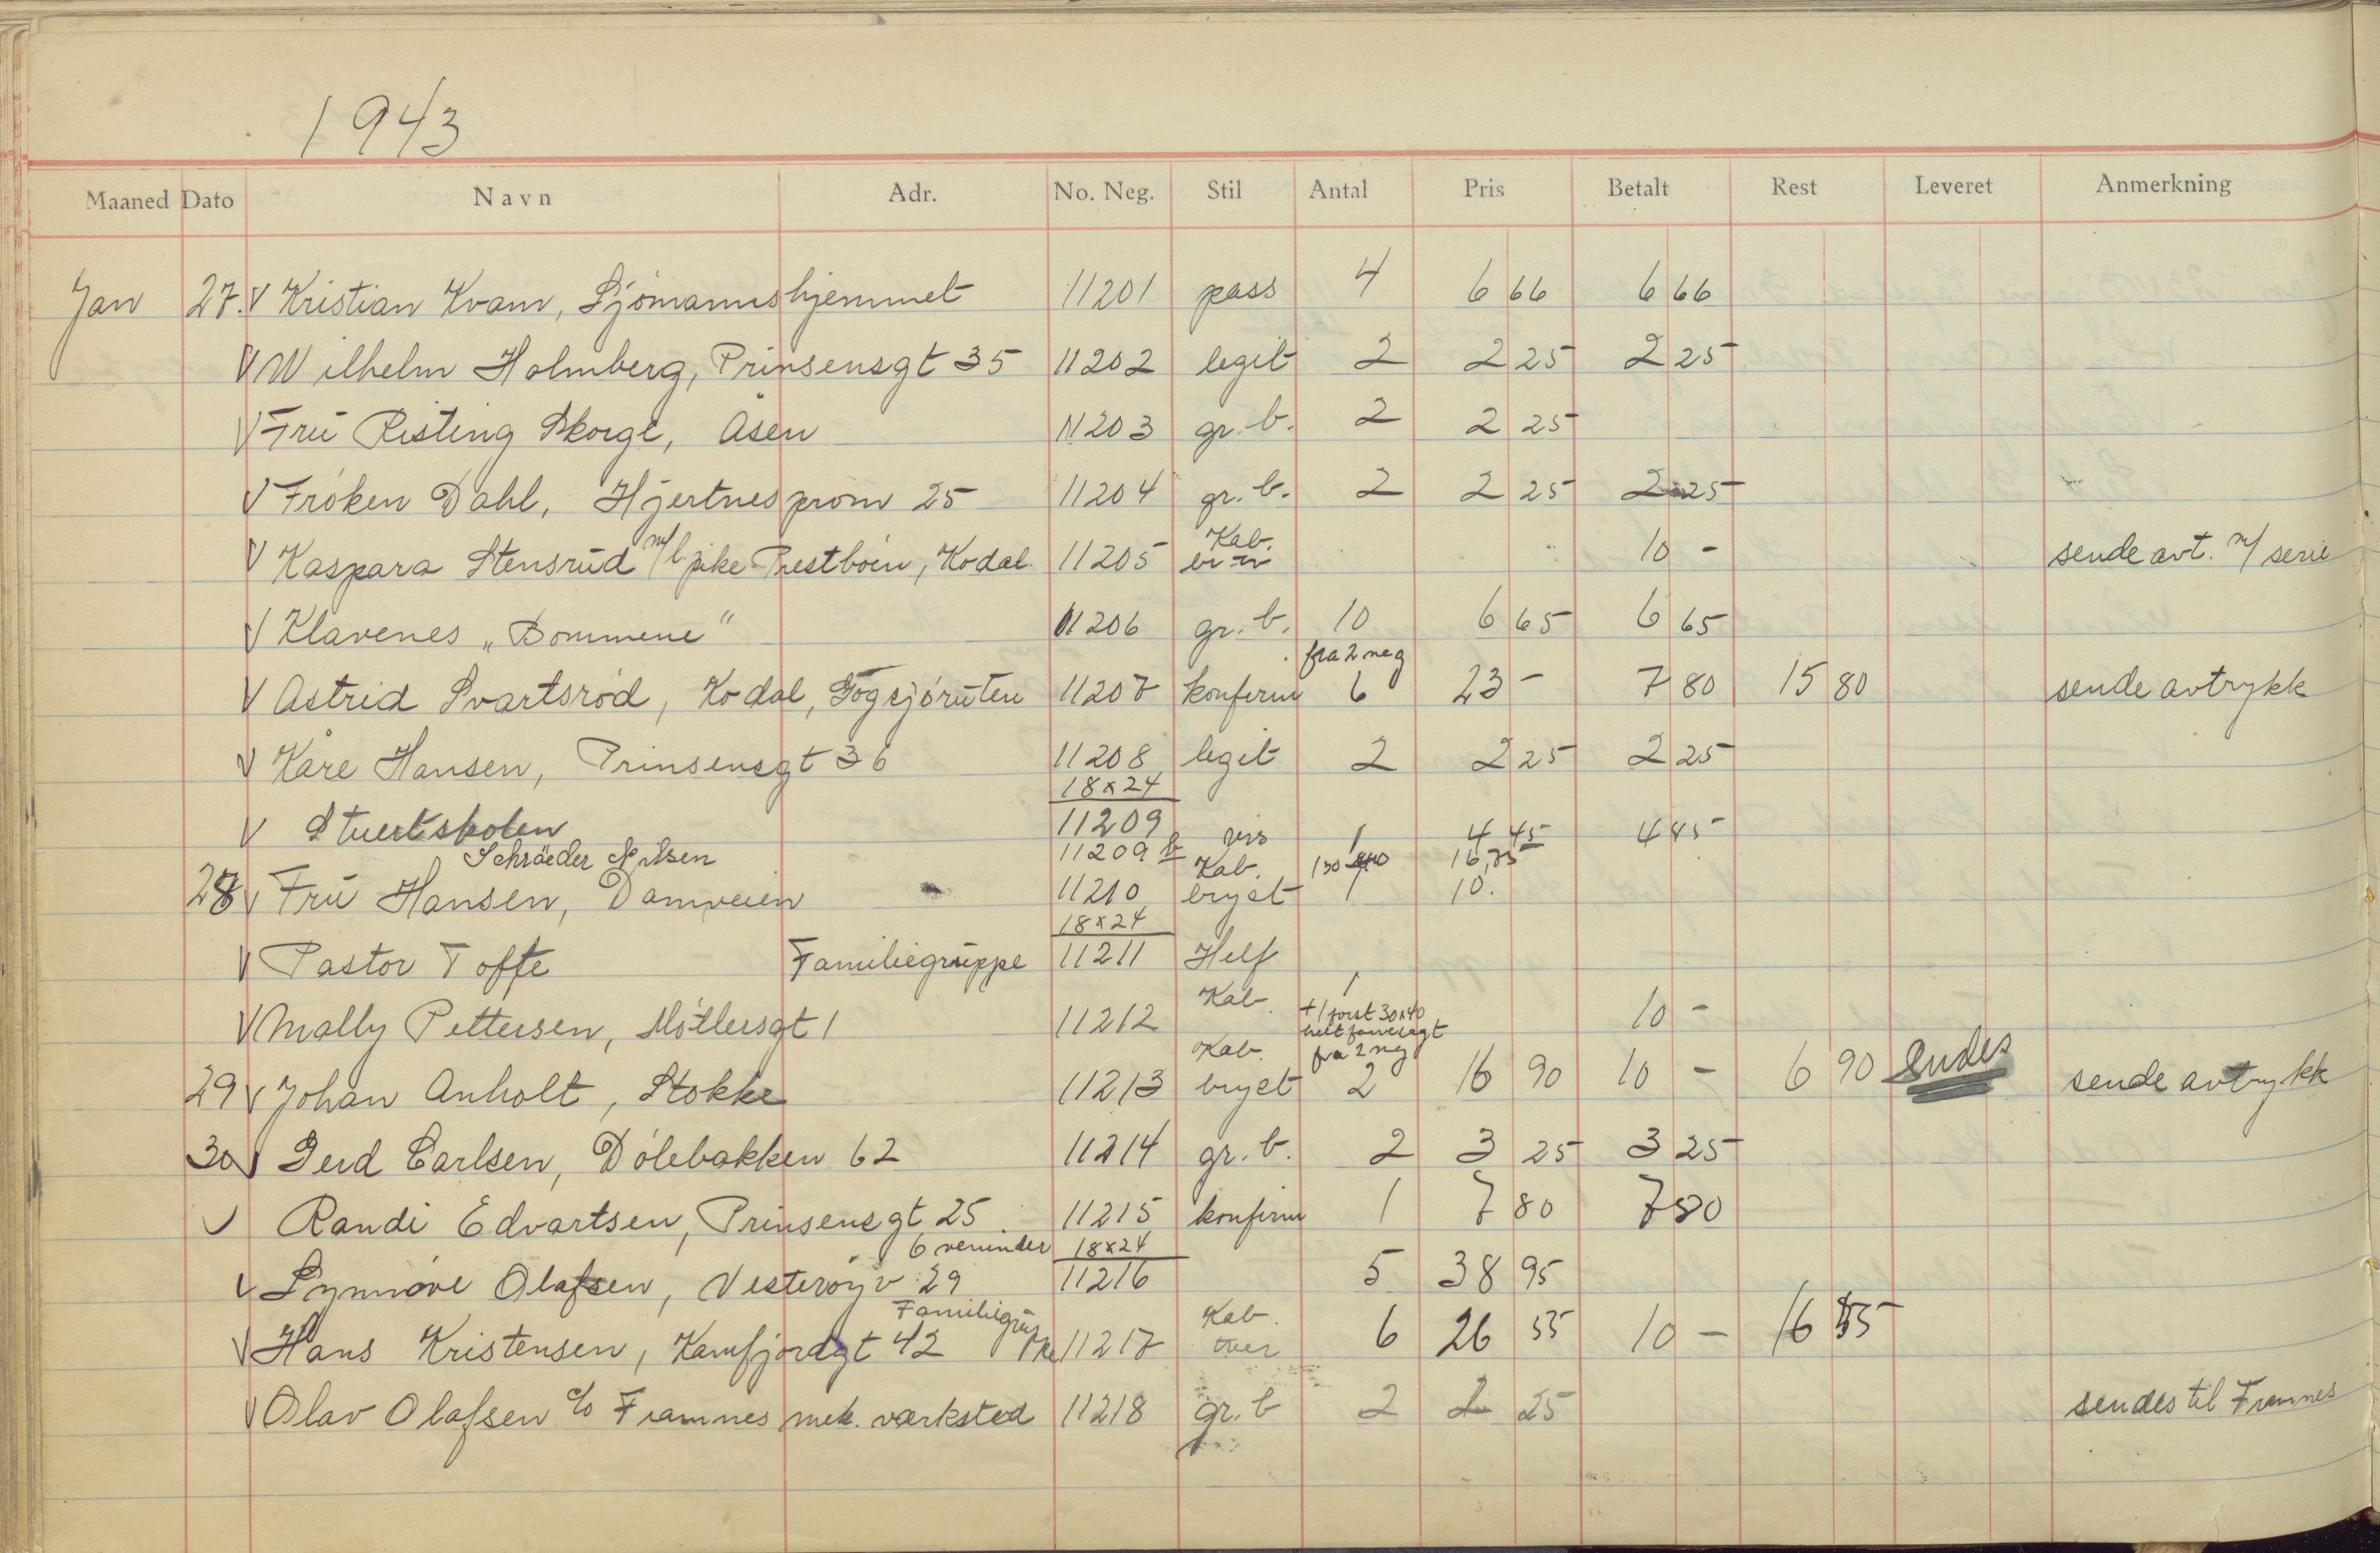 1943
Maaned Dato Navn Adr. No. Neg. Stil Antal Pris Betalt Rest Leveret Anmerkning
Jan 27. V Kristian Kvam, Sjömannshjemmet 11201 pass 4 6 66 6 66
V Wilhelm Holmberg, Prinsensgt 35 11202 legit 2 2 25 2 25
V Fru Risting Skorge, Åsen 11203 gr. b. 2 2 25
V Fröken Dahl, Hjertnesprom 25 11204 gr. b. 2 2 25 2 25
V Kaspara Stensrud m/l pike Prestbøen, Kodal 11205 Kab. 10 - sende avt. m/ serie
V Klavenes „Bommene" 11206 gr. b. 10 6 65 6 65
fra 2 neg
V Astrid Svartsröd, Kodal, Gogsjöruten 11207 konfirm 6 23 - 7 80 15 80 sende avtrykk
V Kåre Hansen, Prinsensgt 36 11208 legit 2 2 25 2 25
18x24
V Stuertskolen 11209 vis 1 4 45 4 45
Schrøder Nilsen 11209 b Kab. 16,75
28 V Fru Hansen, Damveien 11210 bryst 1 10.
18x24
V Pastor Tofte Familiegruppe 11211 Helf
V Mally Pettersen, Möllersgt 1 11212 Kab. 1 10 -
+ 1 forst 30x40
Kab. fra 2 neg
29 V Johan Anholt, Stokke 11213 bryst 2 16 90 10 - 6 90 Sendes sende avtrykk
30 V Gerd Carlsen, Dölebakken 62 11214 gr. b. 2 3 25 3 25
V Randi Edvartsen, Prinsensgt 25. 11215 konfirm 1 7 80 7 80
6 veninder 18x24
V Synnöve Olafsen, Vesteröyv 29 11216 5 38 95
Familiegruppe Kab.
V Hans Kristensen, Kamfjordgt 42 11217 tver 6 26 55 10 - 16 55
V Olav Olafsen c/o Framnes mek. værksted 11218 gr. b 2 2 25 sendes til Framnes